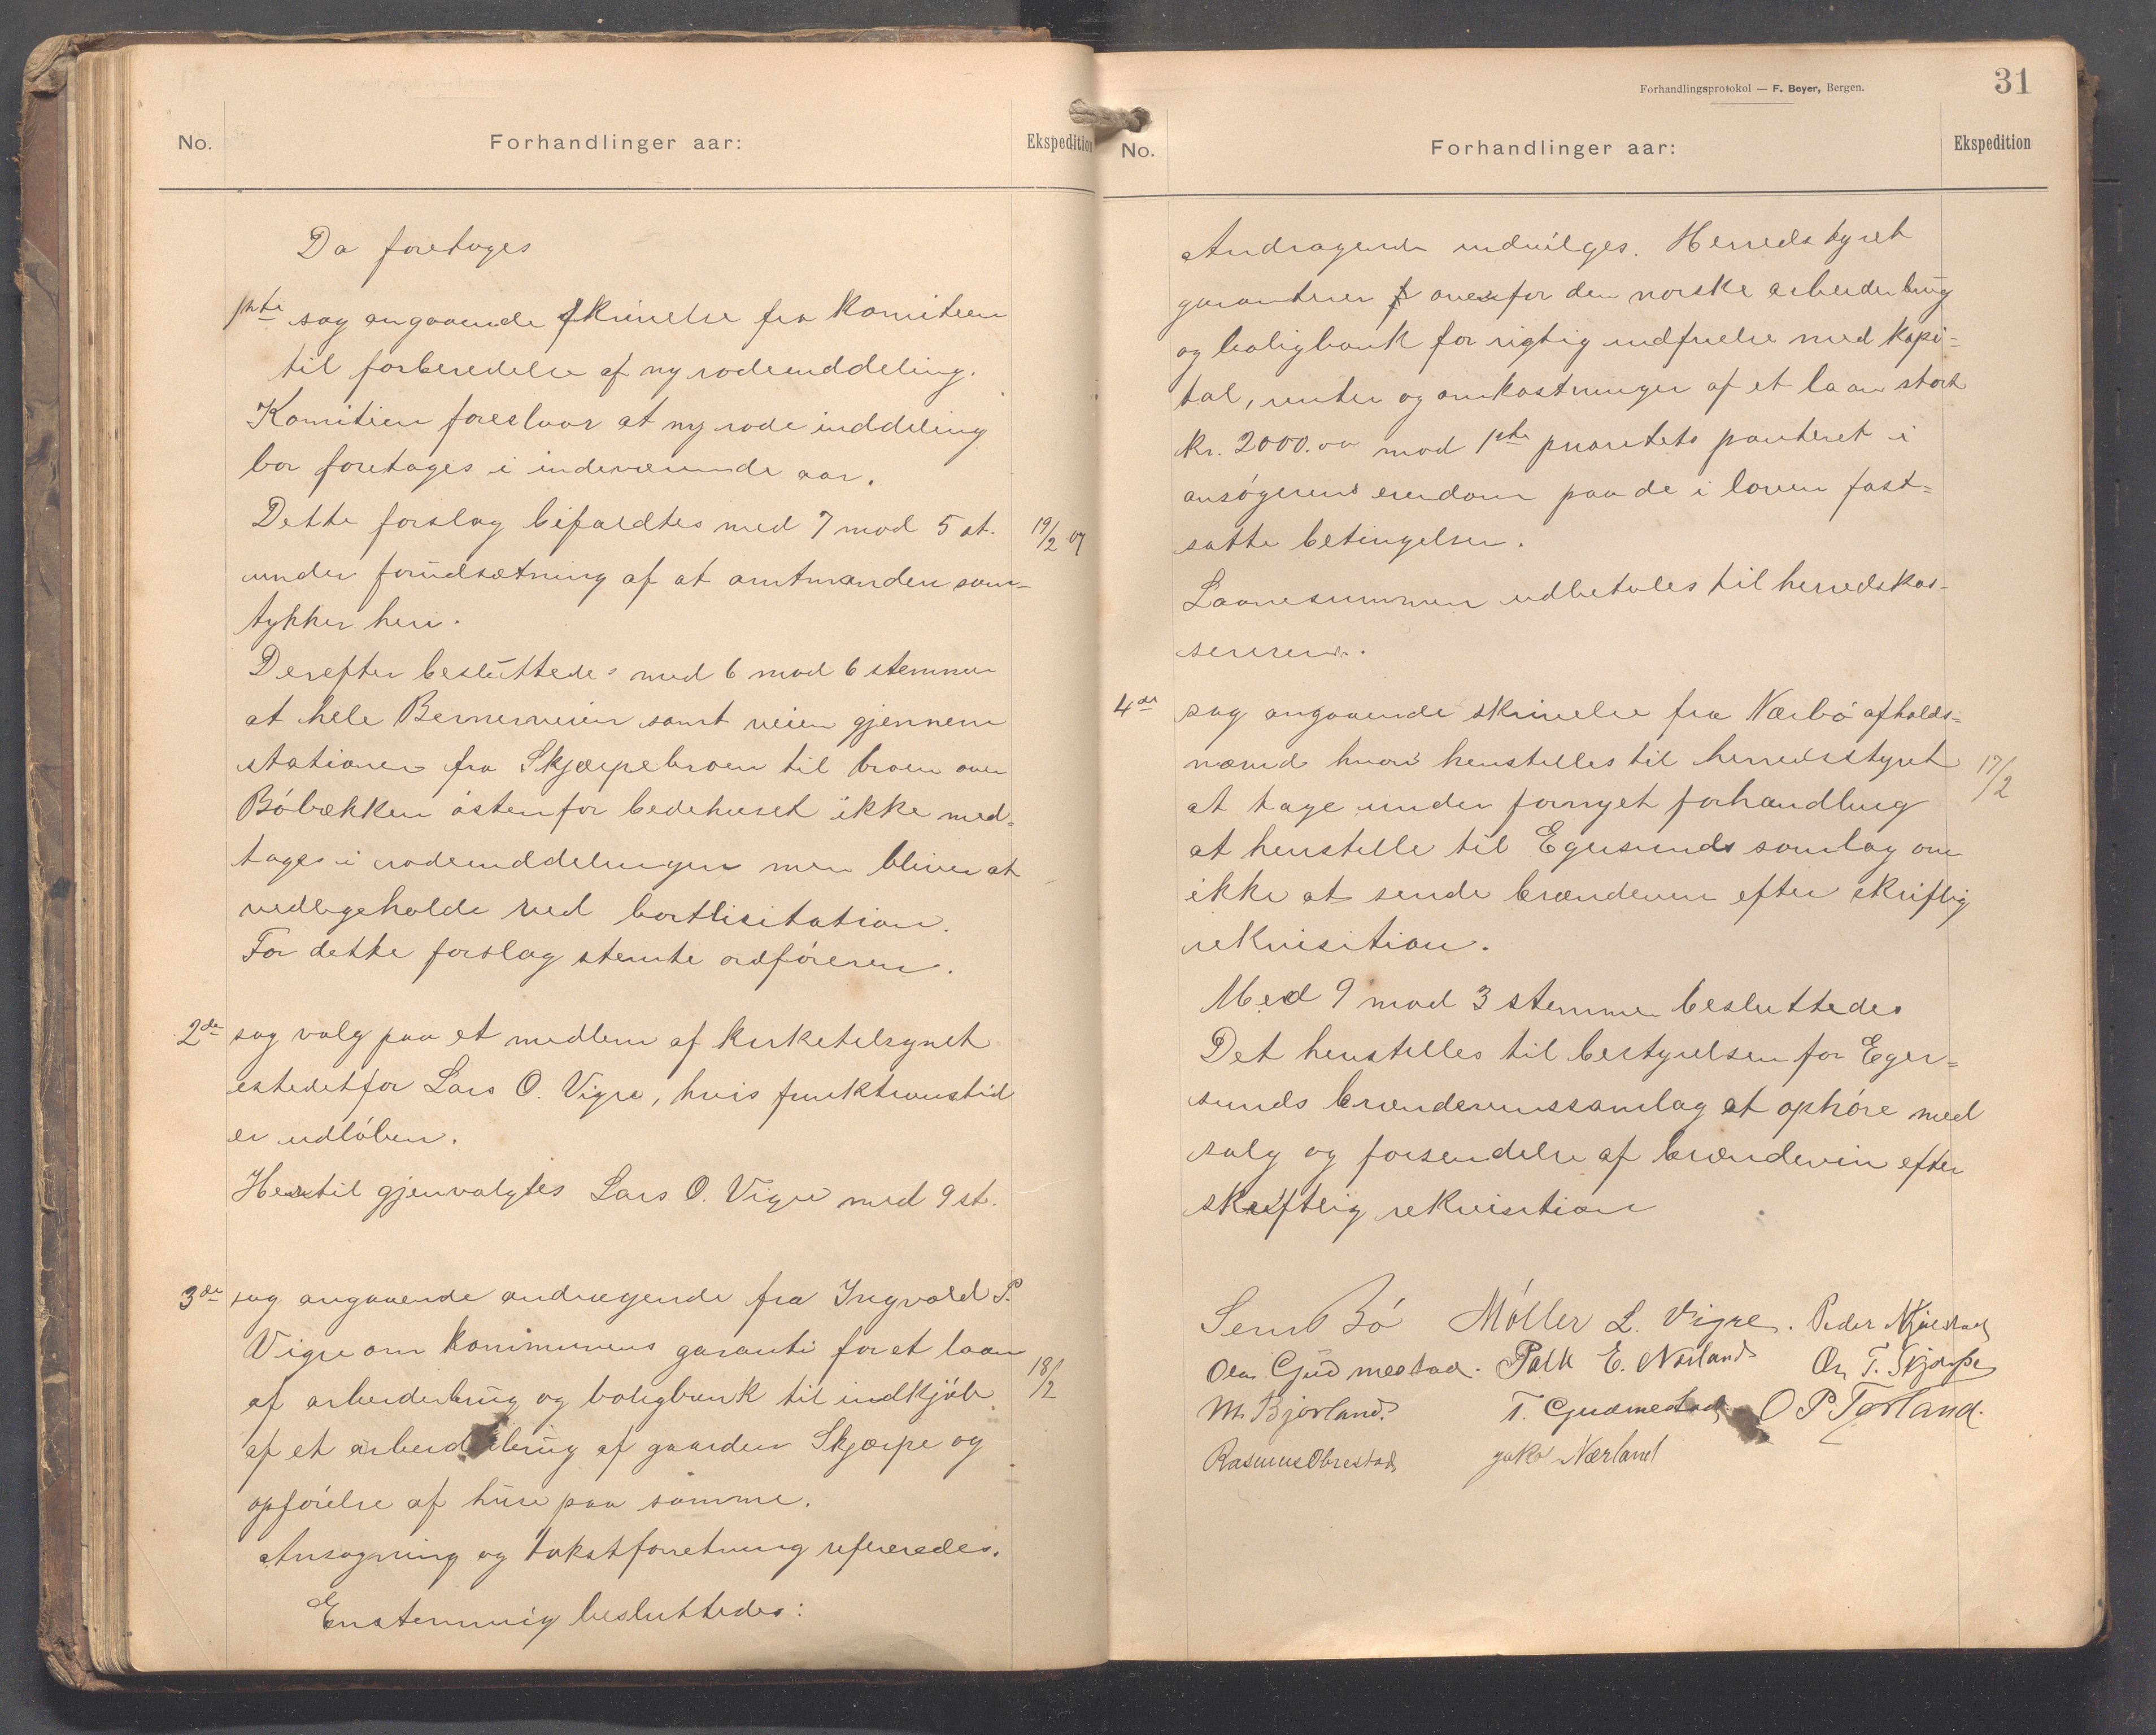 No.
Forhandlinger aar:
Ekspedition
Da foretoges
1ste sag angaaende skrivelse fra komiteen
til forberedelse af ny rodeinddeling.
Komiteen foreslaar at ny rode inddeling
bør foretages i indeværende aar.
Dette forslag bifaldtes med 7 mod 5 st. 19/2 07
under forudsætning af at amtmanden sam-
tykker heri.
Derefter besluttedes med 6 mod 6 stemmer
at hele Bernerveien samt veien gjennem
stationen fra Skjærpebroen til broen over
Bóbækken óstenfor bedehuset ikke med=
tages i rodeinddelingen men bliver at
vedligeholde ved bortlisitation.
For dette forslag stemte ordfóreren.
2den sag valg paa et medlem af kirketilsynet
istedetfor Lars O. Vigre, hvis funktionstid
er udlóben.
Hertil gjenvalgtes Lars O. Vigre med 9 st.
3die sag angaaende andragende fra Ingvald P.
Vigre om kommunens garanti for et laan
af arbeiderbrug og boligbank til indkjób 18/2
af et arbeiderbrug af gaarden Skjærpe og
opfórelse af huse paa samme.
Ansøgning og takstforretning refereredes.
Enstemmig besluttedes:
Forhandlingsprotokol — F. Beyer, Bergen.
31
No.
Forhandlinger aar:
Ekspedition
Andragende indvilges. Herredstyret
garanterer overfor den norske arbeiderbrug
og boligbank for rigtig indfrielse med kapi=
tal, renter og omkostninger af et laan stort
kr. 2000.00 mod 1ste prioritets panteret i
ansógerens eiendom paa de i loven fast=
satte betingelser.
Laanesummen udbetales til herredskas-
sereren.
4de sag angaaende skrivelse fra Nærbó afholds=
nævnd hvori henstilles til herredsstyret 17/2
at tage under fornyet forhandling
at henstille til Egersunds samlag om
ikke at sende brændevin efter skriftlig
rekvisition.
Med 9 mod 3 stemmer besluttedes
Det henstilles til bestyrelsen for Eger=
sunds brændevinssamlag at ophóre med
salg og forsendelse af brændevin efter
skriftlig rekvisition
Sem Bó Móller L. Vigre. Peder Njælstad
Ola Gudmestad. Falk E. Nórland Ole T. Skjærpe
M. Bjorland. T. Gudmestad. O P Torland.
Rasmus Obrestad Jakob Nærland